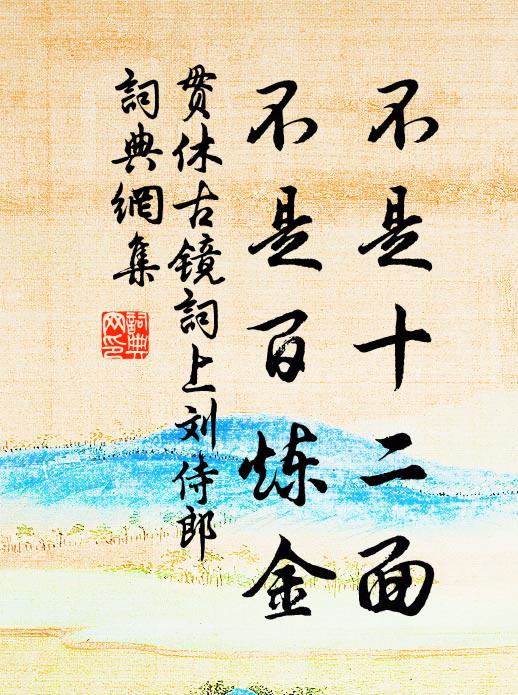 不是十二面
不是百炼金
贯休古镜詞上刘侍郎
詞典網集
詞典网印